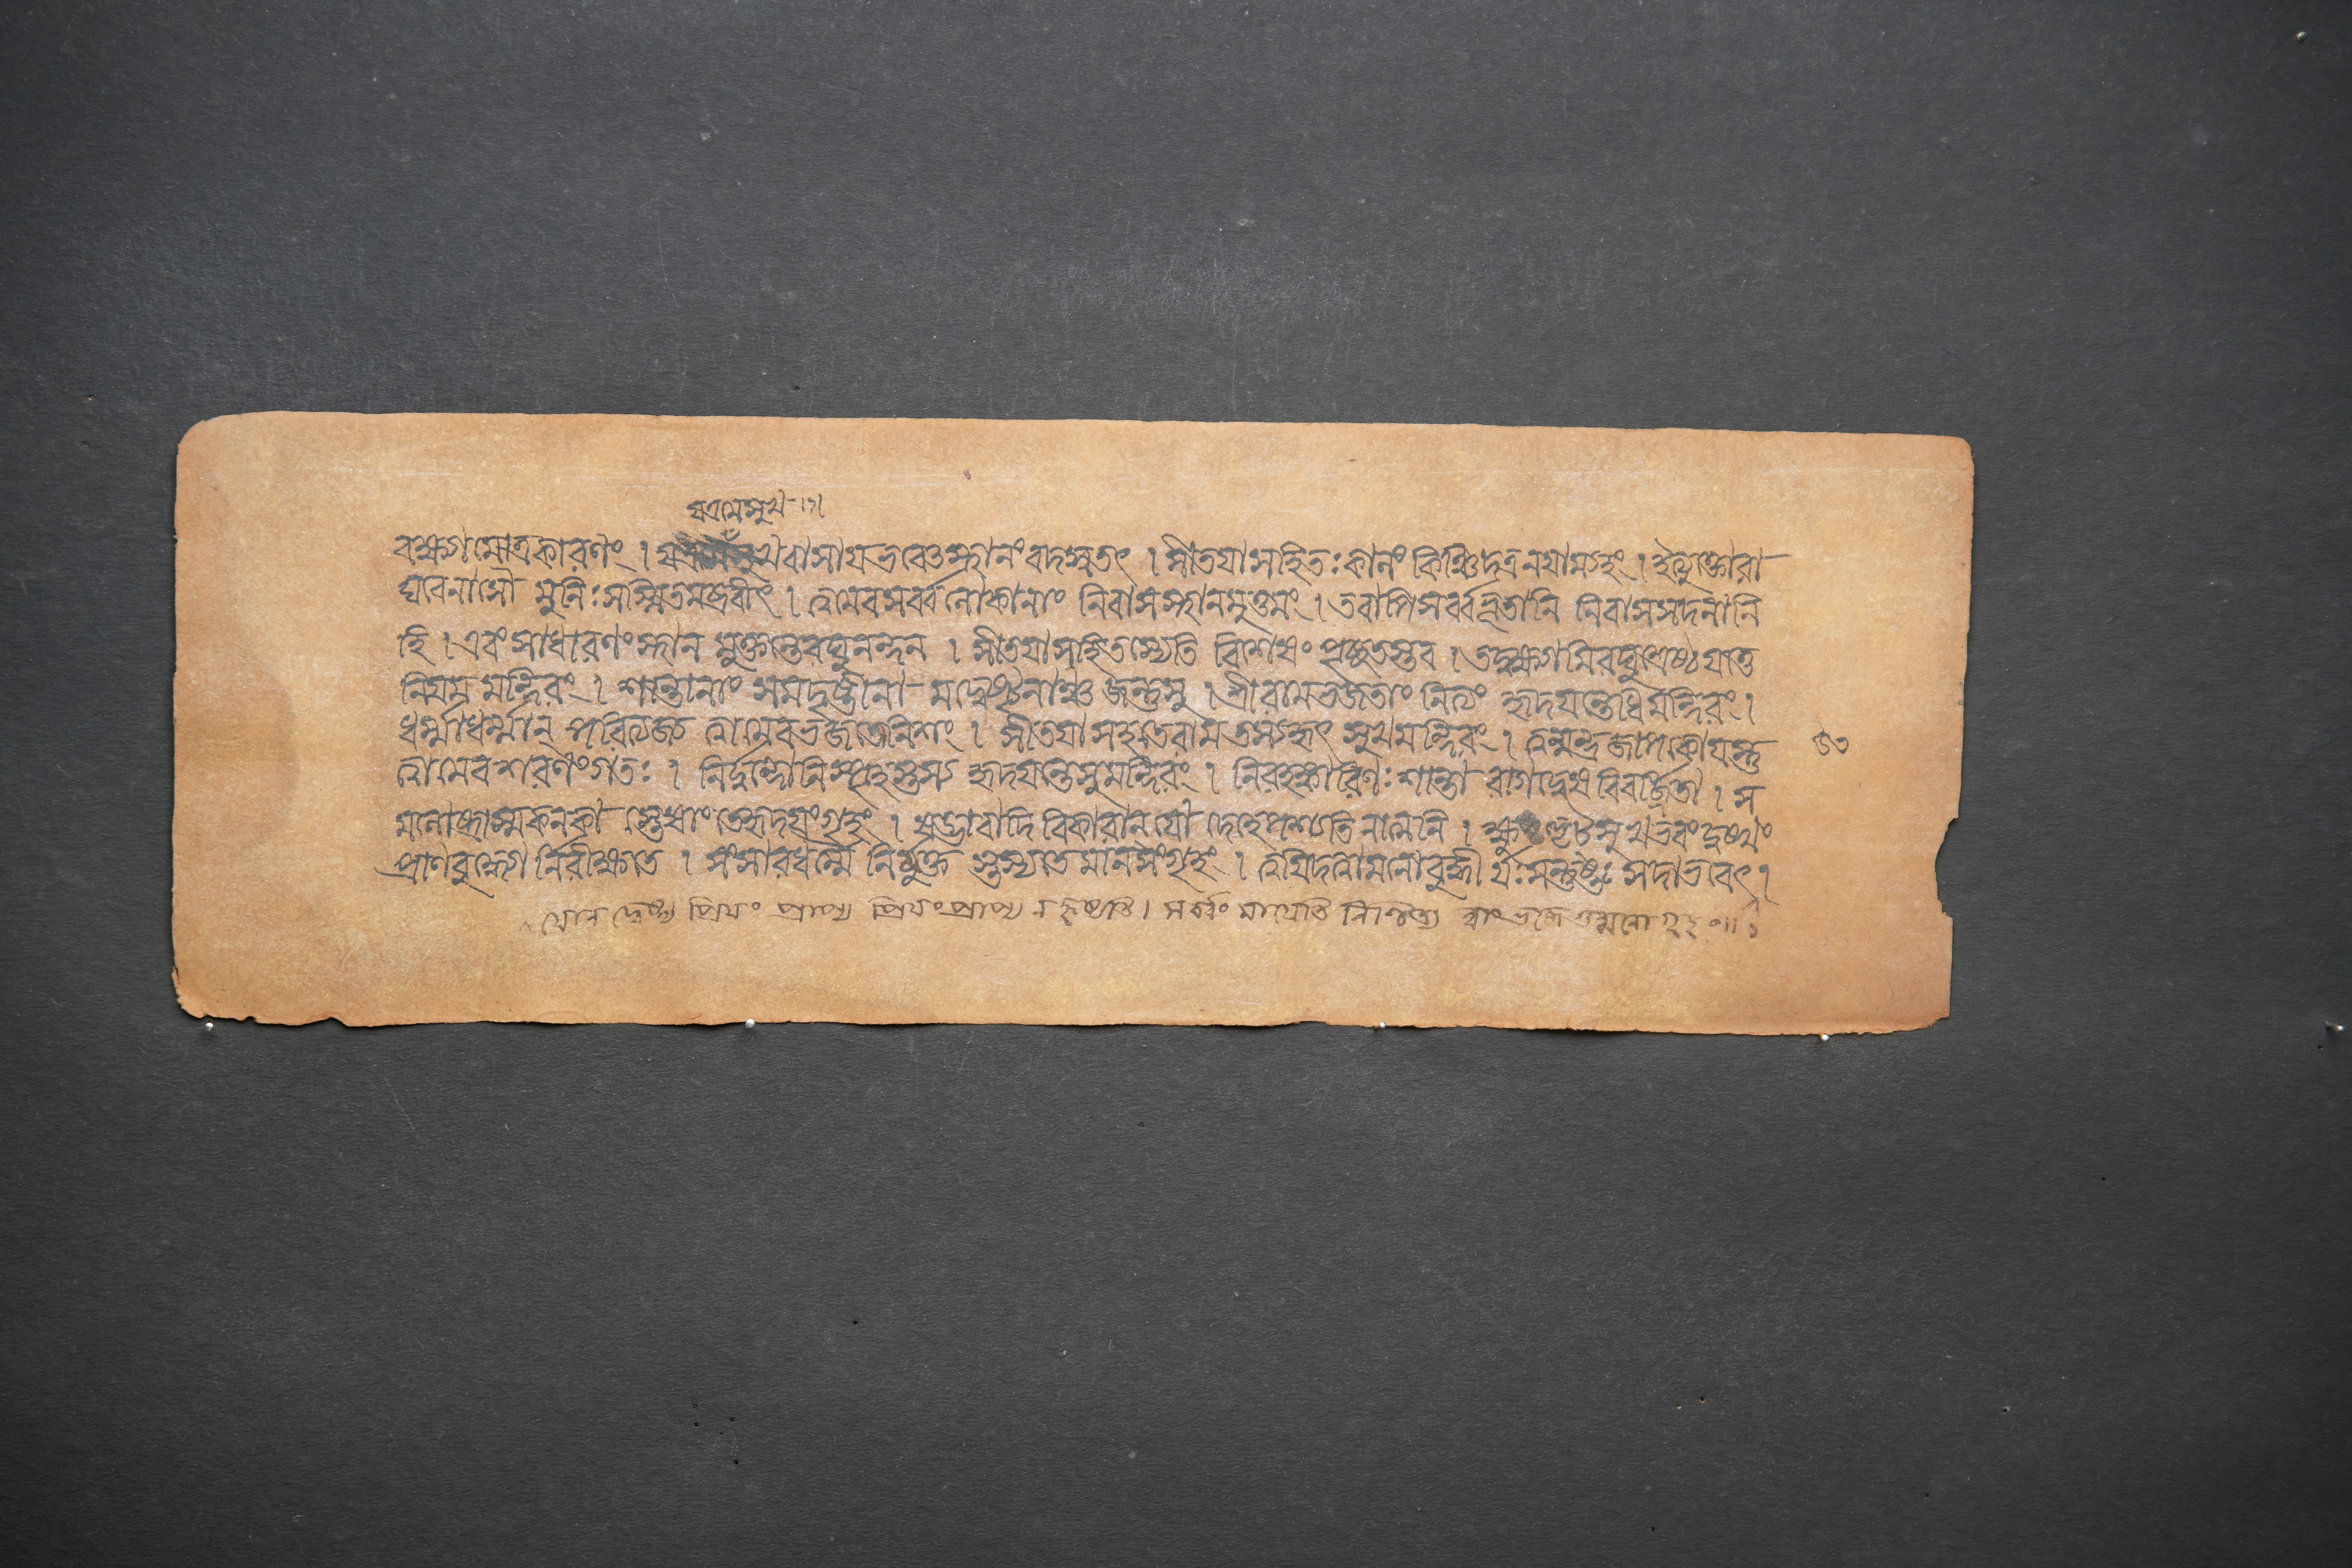 যত্রমেসুখ ।১।
বক্ষ্যামোত্রকারণং । যত্র খবাসায ভবেত্তস্থানং বদস্বতৎ । সীতযাসহিতঃ কালং কিঞ্চিদত্রনযাম্যহং । ইত্যুক্তোরা
ঘবেনাসৌ মুনিঃ সস্মিতমব্রবীৎ । ত্বমেবসর্ব্বলোকানাং নিবাসস্থানমুত্তমং । তবাপিসর্ব্বভূতানি নিবাসসদনানি
হি । এবংসাধারণংস্থান মুক্তান্তেরঘুনন্দন । সীতযাসহিতস্যেতি বিশেষং পৃচ্ছতস্তব । তদ্বক্ষ্যামিরঘুশ্রেষ্ঠ যত্তে
নিযম মন্দিরং । শান্তানাং সমদৃষ্টীনা মদ্বেষ্টৄনাঞ্চ জন্তুষু । শ্রীরামভজতাং নিত্যং হৃদযন্তেধিমন্দিরং ।
ধর্ম্মাধর্ম্মান্ পরিত্যজ্য ত্বামেবভজতোনিশং । সীতযাসহতেরাম তস্যহৃৎ সুখমন্দিরং । ত্বন্মন্ত্রজাপকোযস্তু
ত্বামেবশরণংগতঃ । নির্দ্বন্দ্বোনিস্পৃহস্তস্য হৃদযন্তেসুমন্দিরং । নিরহঙ্কারিণঃ শান্তা রাগদ্বেষ বিবর্জিতা । স
মলোষ্টাস্মকনকা স্তেষাংতেহৃদযংগৃহং । ষড্ভাবাদি বিকারানযো দেহেপশ্যতিনাত্মনি । ক্ষুত্তৃট্ সুখংভযংদুঃখং
প্রাণবুদ্ধ্যো র্নিরীক্ষ্যতে । সংসারধর্ম্মৈ র্নির্মুক্ত স্তস্যতে মানসংগৃহং । ত্বযিদত্তমনোবুদ্ধী র্যঃ সন্তুষ্টঃ সদাভবেৎ ।
যোন দ্বেষ্ট্য প্রিযং প্রাপ্য প্রিযংপ্রাপ্য নহৃষ্যতি । সর্ব্বং মাযেতি নিশ্চিত্য ত্বাংভজে তন্মনোগৃহং ॥ ১
৩৩